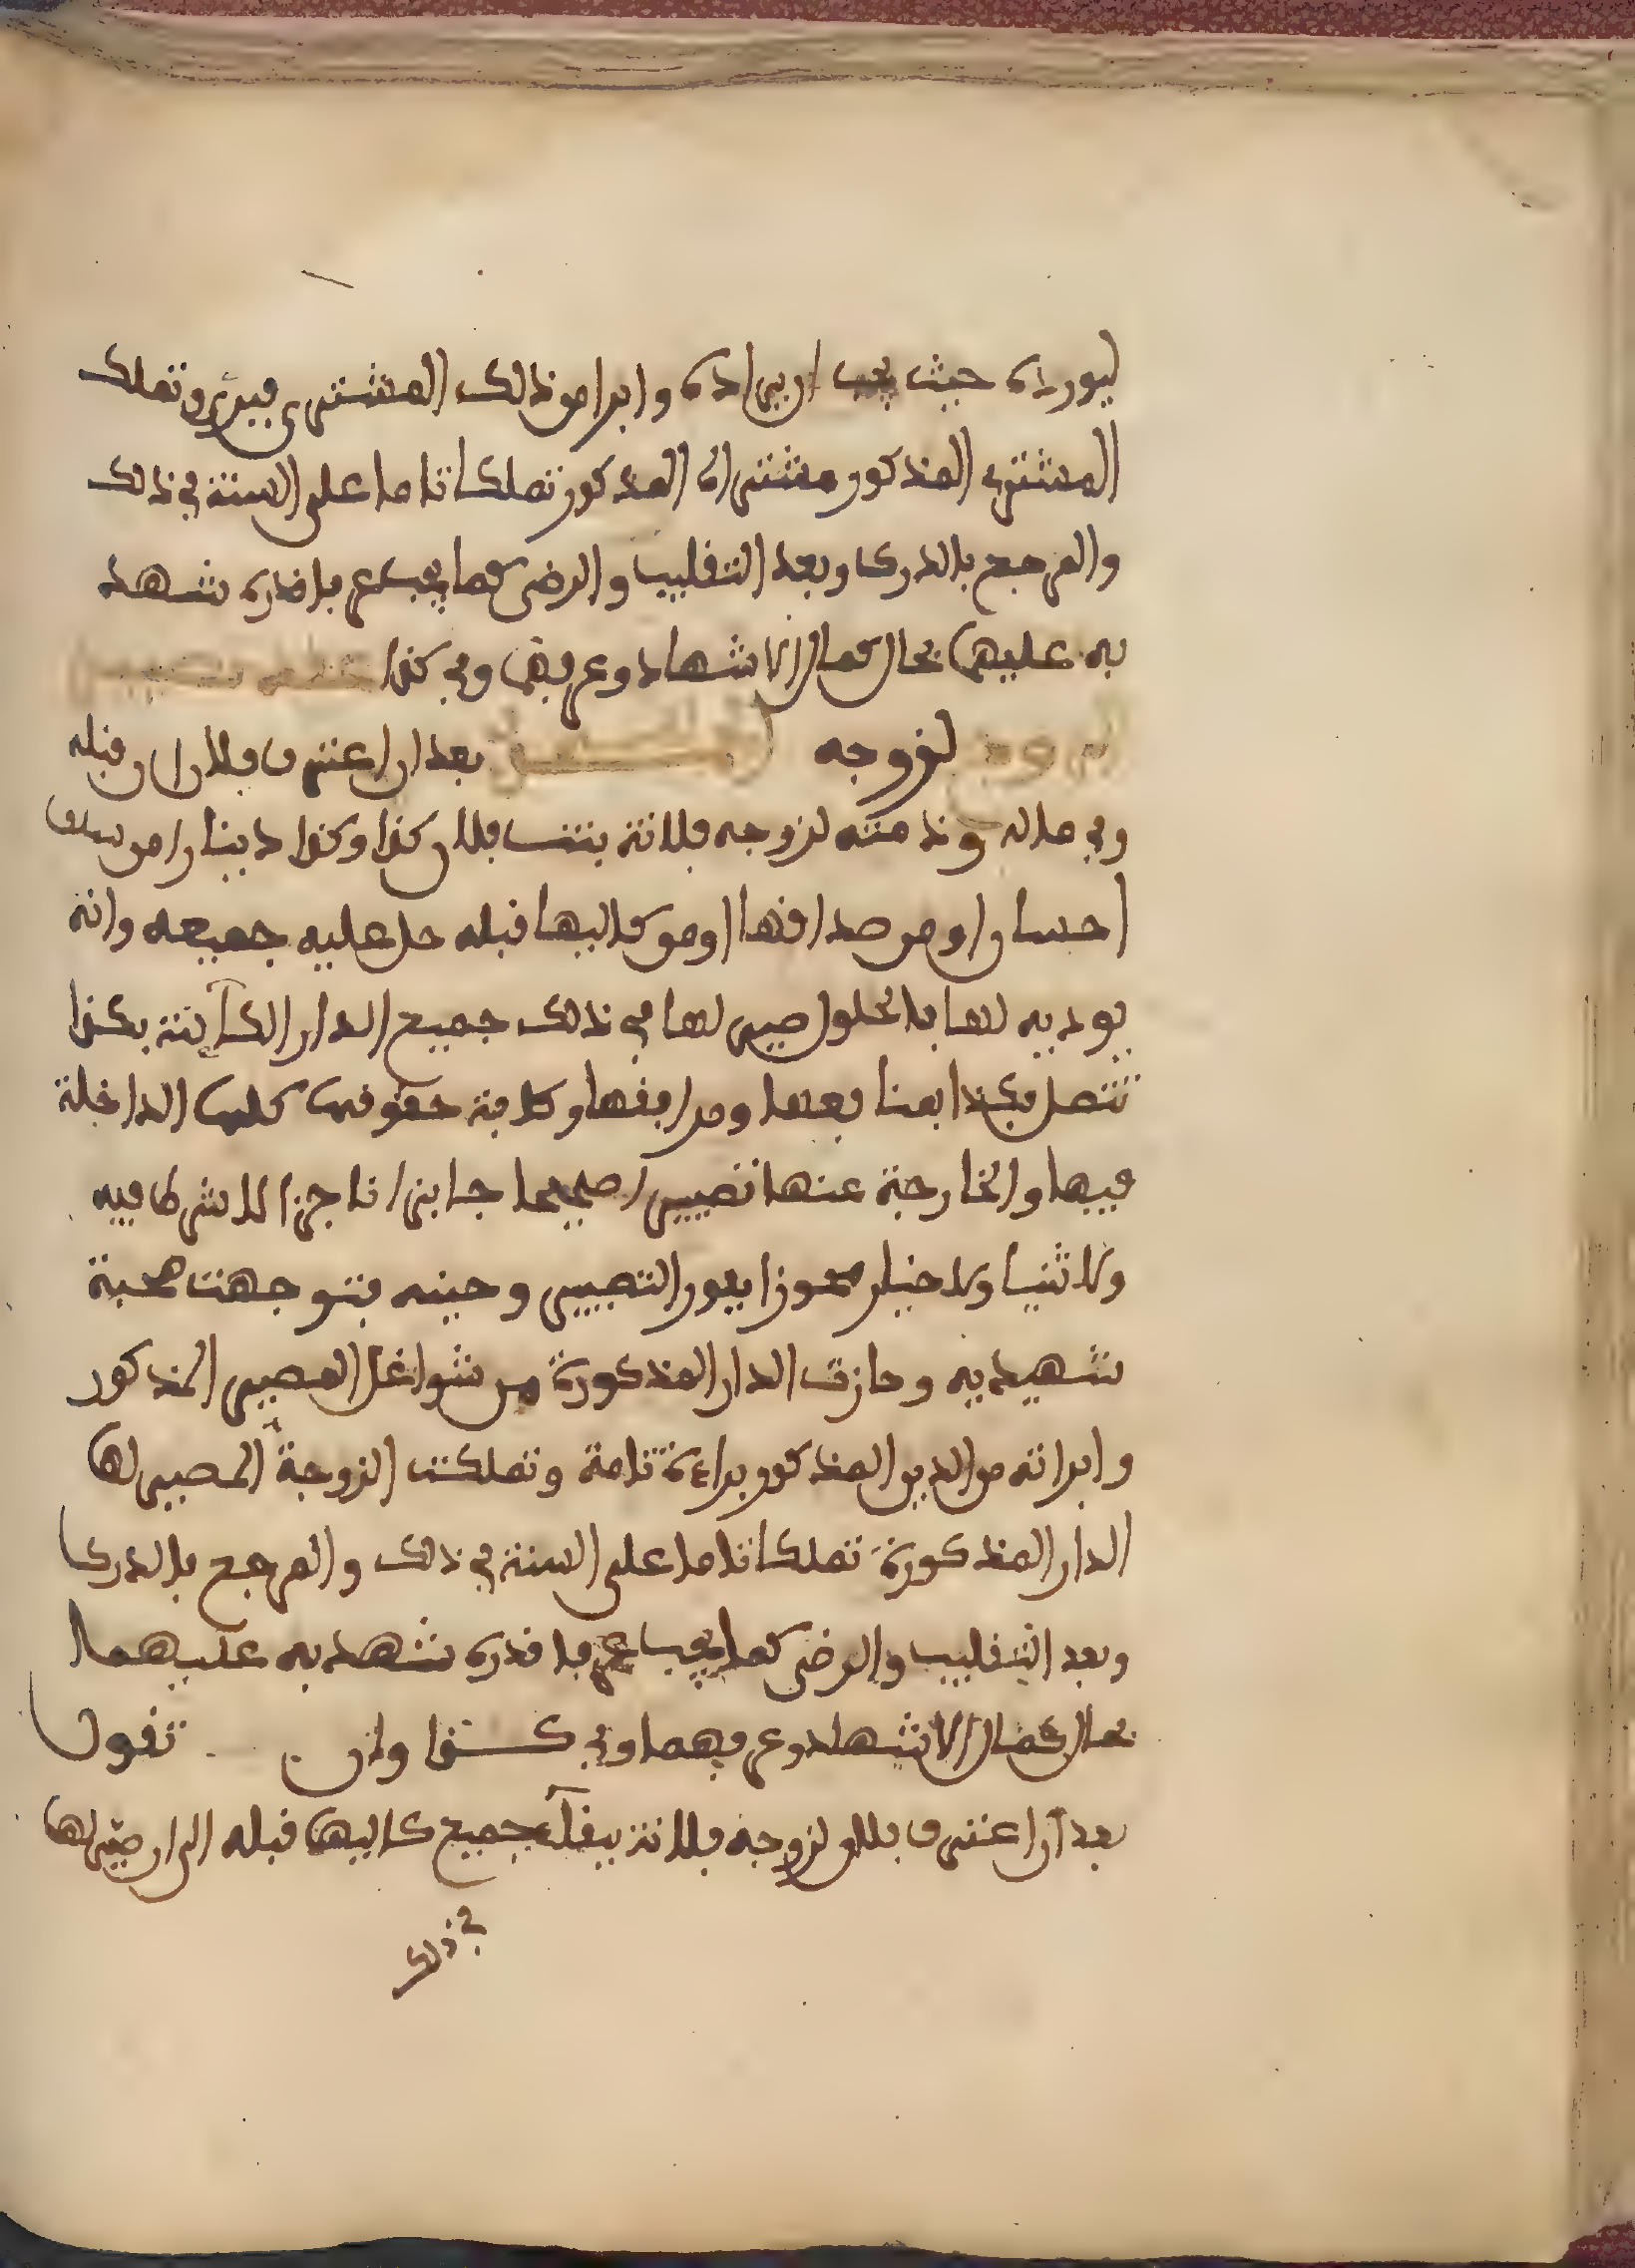 ليورده حيث يجب ايراده وابرا من ذالك المشتري فبرئ وتملك
المشتري المذكور مشتراه المذكور تملكا تاما على السنة في ذلك
والمرجع بالدرك وبعد التقليب والرضى كما يجب عرفا قدره شهد
به عليهما بحال كمال الاشهاد وعرفهما وفي كذا
لزوجه بعد ان اعترف فلان ان قبله
وفي ماله وذمته لزوجه فلانة بنت فلان كذا وكذا دينارا من سلف
احسان او من صداقها او من كاليها قبله حل عليه جميعه وانه
يوديه لها بالحلول صير لها في ذلك جميع الدار الكائنة بكذا
تتصل بكذا بمنافعها ومرافقها وكافة حقوقها كلها الداخلة
فيها والخارجة عنها تصييرا صحيحا جايزا ناجزا لا شرط فيه
ولا ثنيا ولا خيار محوزا بفور التصيير وحينه فتوجهت صحبة
شهيديه وحازت الدار المذكورة من شواغل المصير المذكور
وابراته من الدين المذكور براءة تامة وتملكت الزوجة المصير لها
الدار المذكورة تملكا تاما على السنة في ذلك والمرجع بالدرك
وبعد التقليب والرضى كما يجب عرفا قدره شهد به عليهما
بحال كمال الاشهاد وعرفهما وفي كذا وان تقول
بعد ان اعترف فلان لزوجه فلانة ببقاء جميع كاليها قبله الى ان صير لها
في ذلك